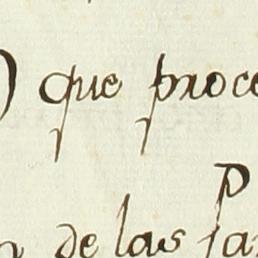 que proce
P
de las